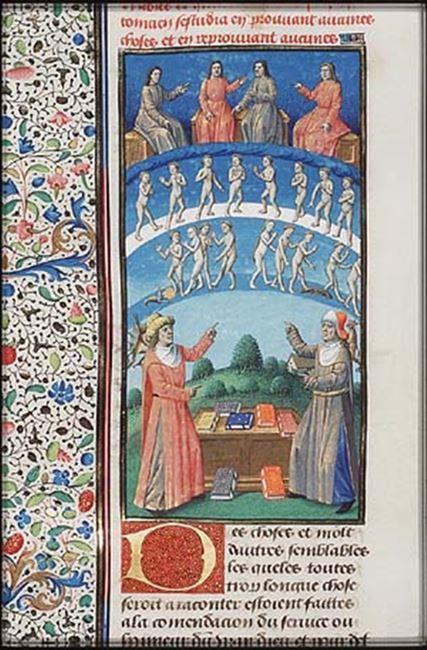 tomaen sestudia en prouuant aucunes
choses et en reprouuant aucunes
Des choses et molt
dautres semblables
les queles toutes
trop longue chose
seroit a raconter estoient faittes
a la comendacion du seruice ou